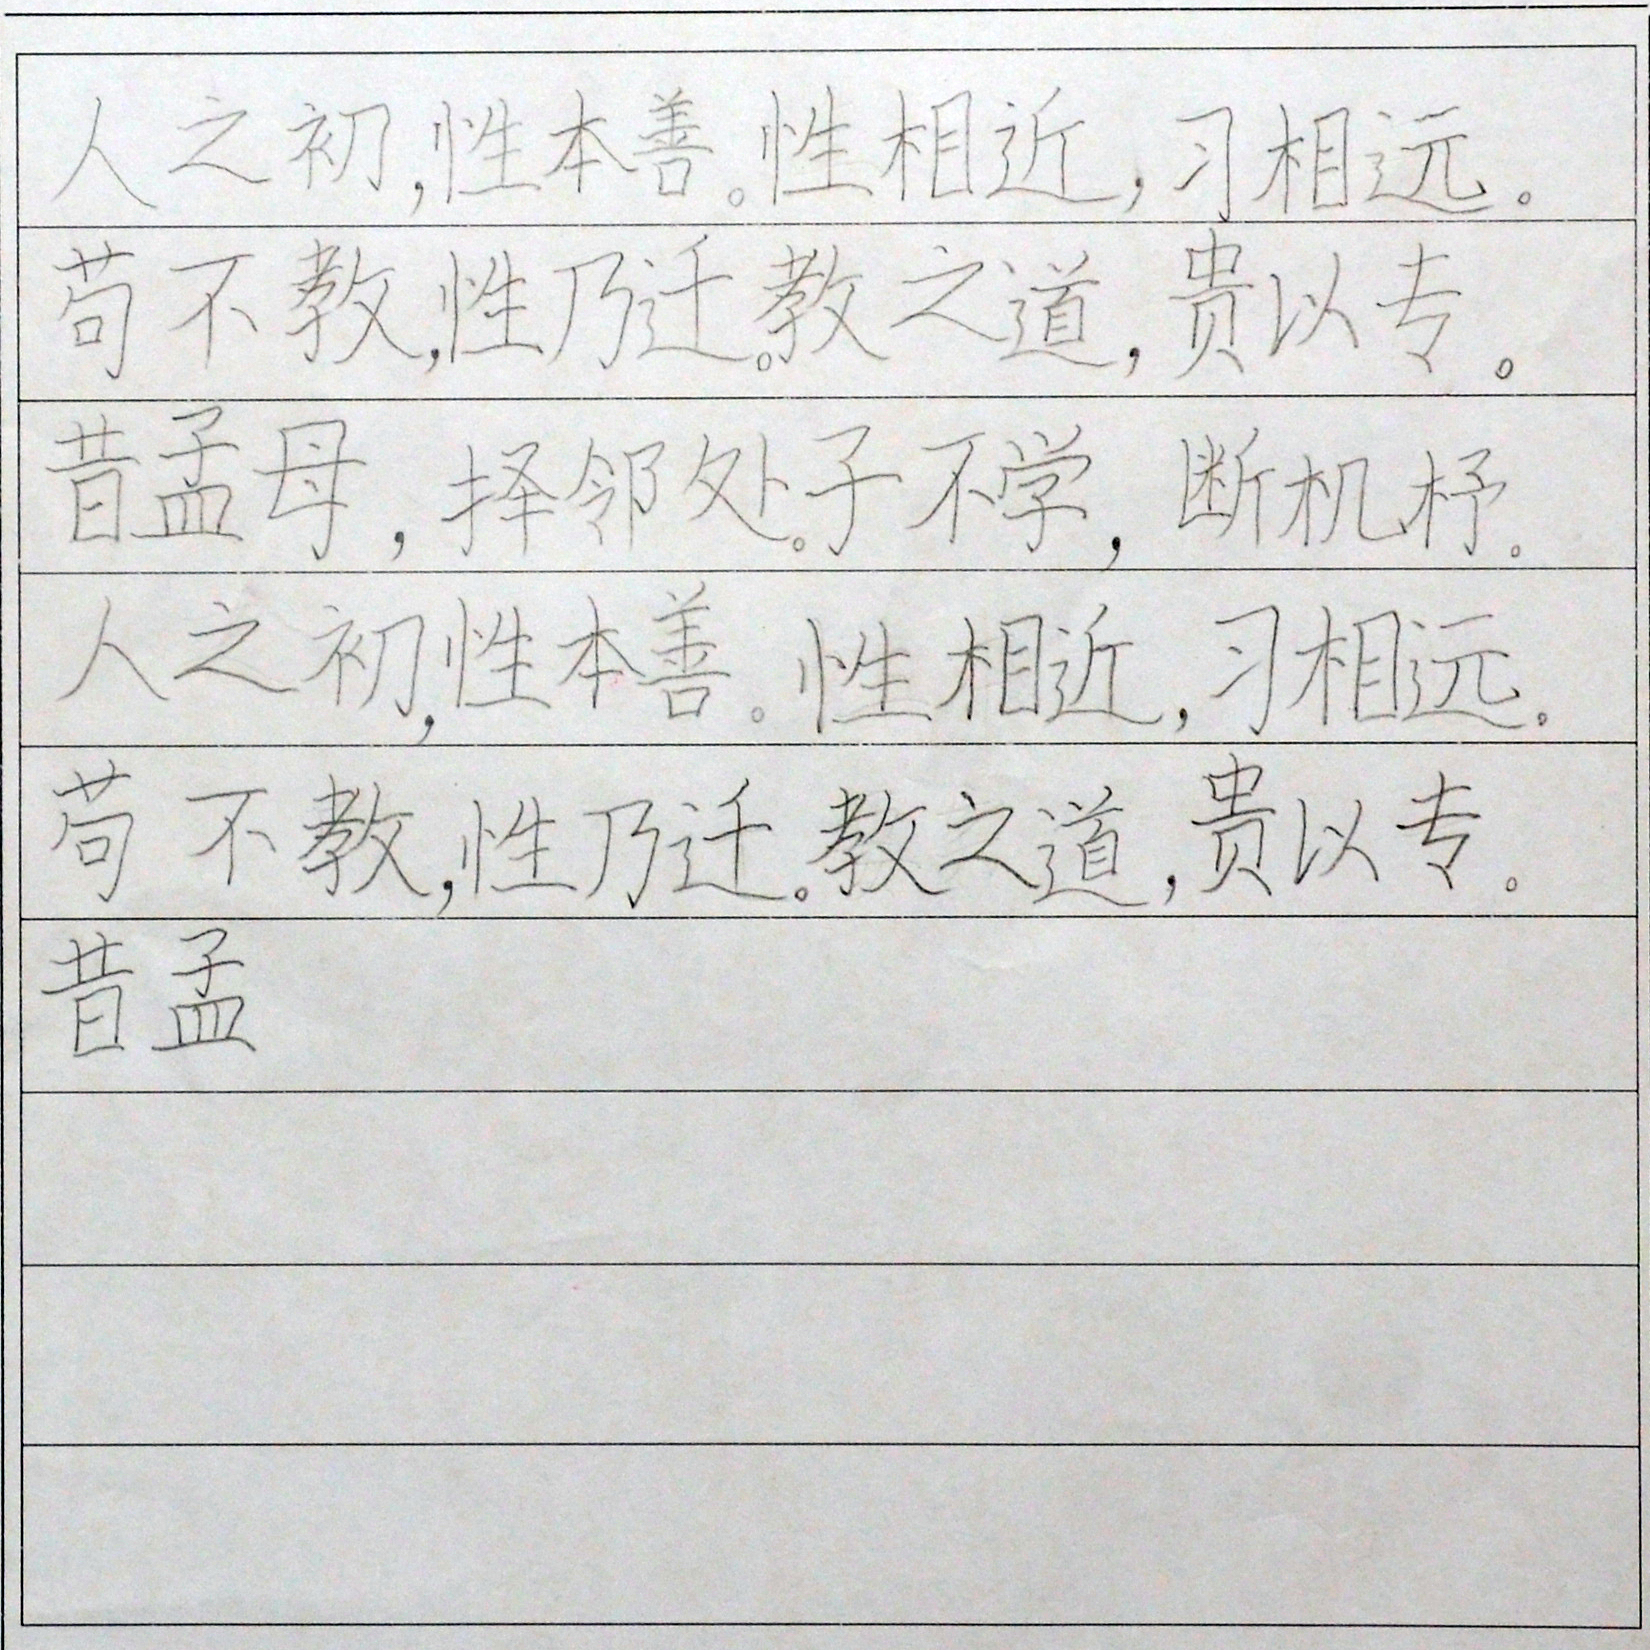 人之初,性本善。性相近,习相远。
苟不教,性乃迁。教之道,贵以专。
昔孟母,择邻处。子不学,断机杼。
人之初,性本善。性相近,习相远。
苟不教,性乃迁。教之道,贵以专。
昔孟